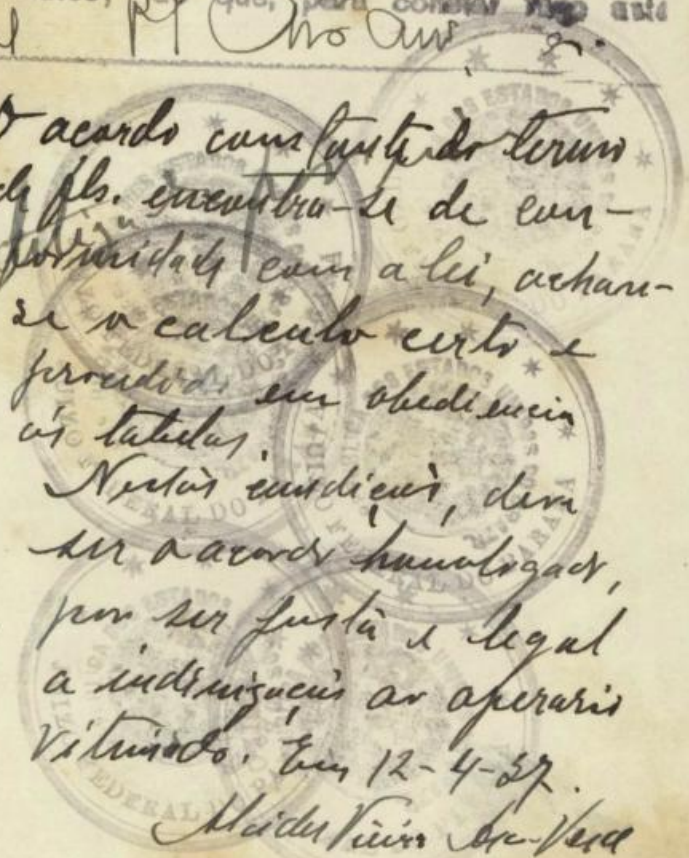 que, para constar faço este
O acordo constante do termo
de fls. encontra-se de con-
formidade com a lei, achan-
se o calculo certo e
procedido em obediencia
ás tabelas.
Nestas condições, deve
ser o acordo homologado,
por ser justa e legal
a indenisação ao operario
vitimado. Em 12-4-37.
Alcides Vieira